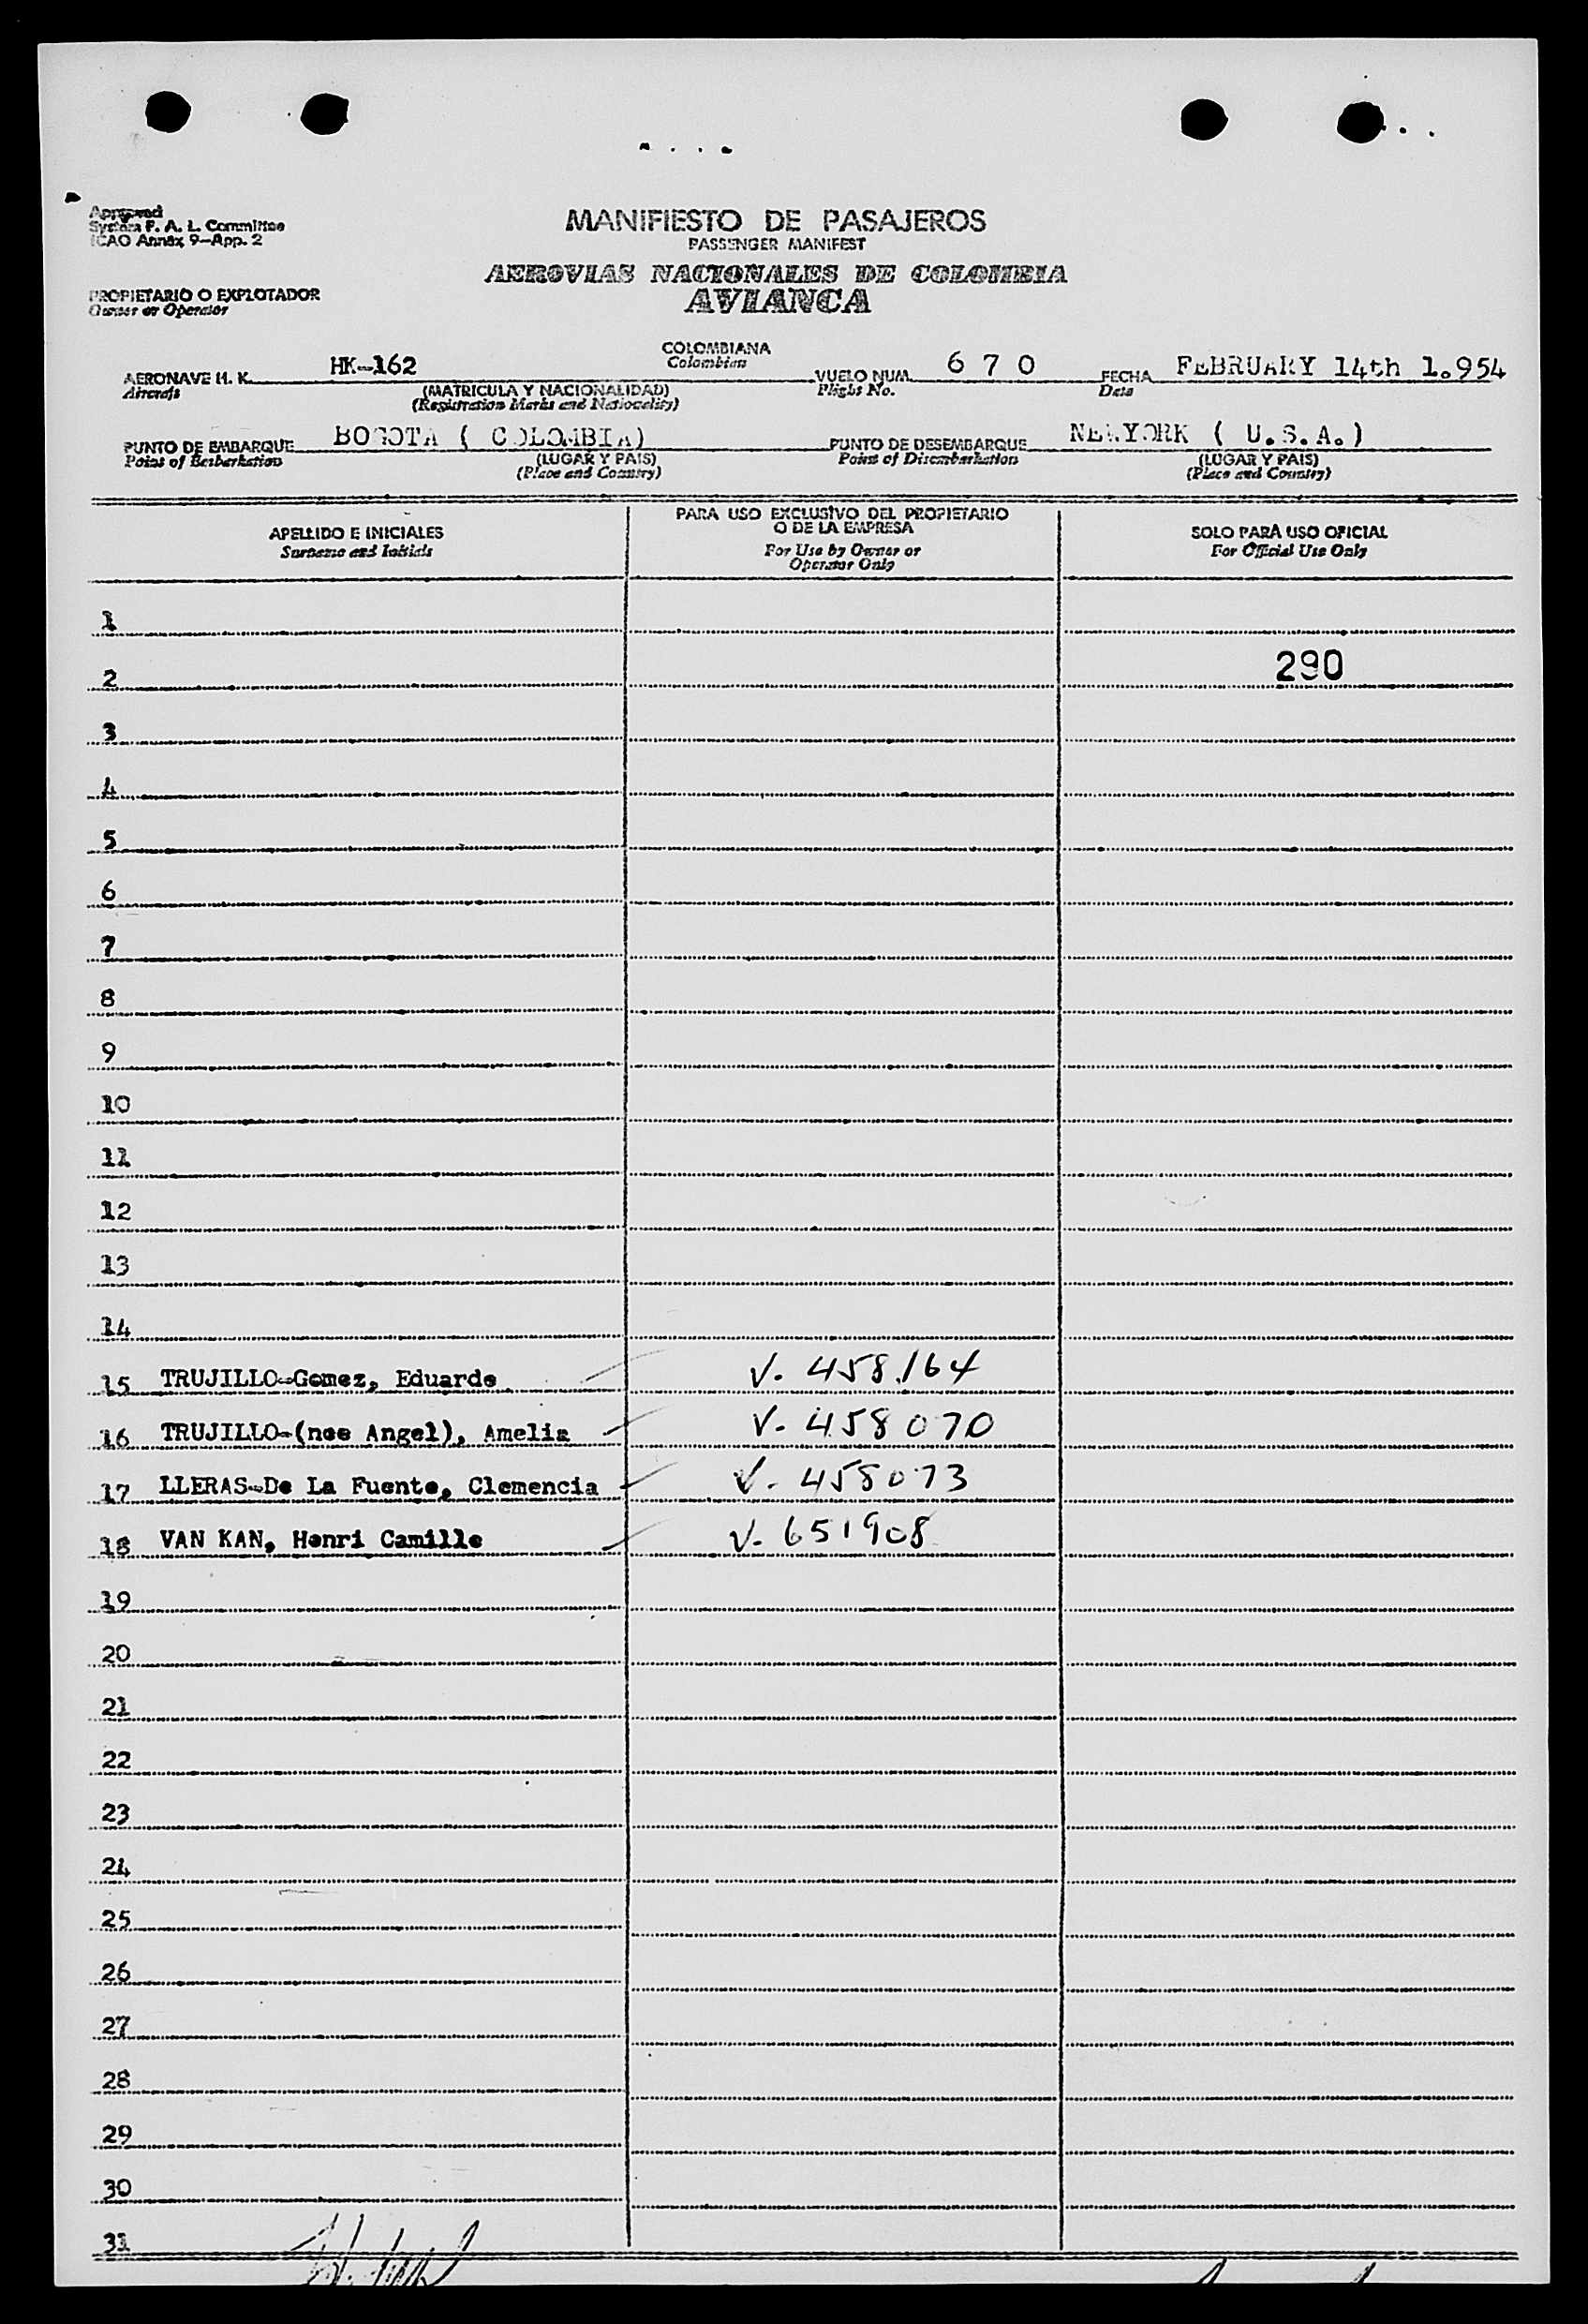 Approved
System F. A. L. Committee
ICAO Annex 9—App. 2
MANIFIESTO DE PASAJEROS
PASSENGER MANIFEST
AEROVIAS NACIONALES DE COLOMBIA
AVIANCA
PROPIETARIO O EXPLOTADOR
Owner or Operator
AERONAVE H. K. HK-162 COLOMBIANA VUELO NUM. 6 7 0 FECHA FEBRUARY 14th 1.954
Aircraft Colombian Flight No. Date
(MATRICULA Y NACIONALIDAD)
(Registration Marks and Nationality)
PUNTO DE EMBARQUE BOGOTA ( COLOMBIA) PUNTO DE DESEMBARQUE NEW.YORK ( U.S.A.)
Point of Embarkation (LUGAR Y PAIS) Point of Disembarkation (LUGAR Y PAIS)
(Place and Country) (Place and Country)
APELLIDO E INICIALES
Surname and Initials
PARA USO EXCLUSIVO DEL PROPIETARIO
O DE LA EMPRESA
For Use by Owner or
Operator Only
SOLO PARA USO OFICIAL
For Official Use Only
1
2 290
3
4
5
6
7
8
9
10
11
12
13
14
15 TRUJILLO-Gomez, Eduardo V. 458.164
16 TRUJILLO-(nee Angel), Amelia V- 458070
17 LLERAS-De La Fuente, Clemencia V- 458073
18 VAN KAN, Henri Camille V- 651908
19
20
21
22
23
24
25
26
27
28
29
30
31